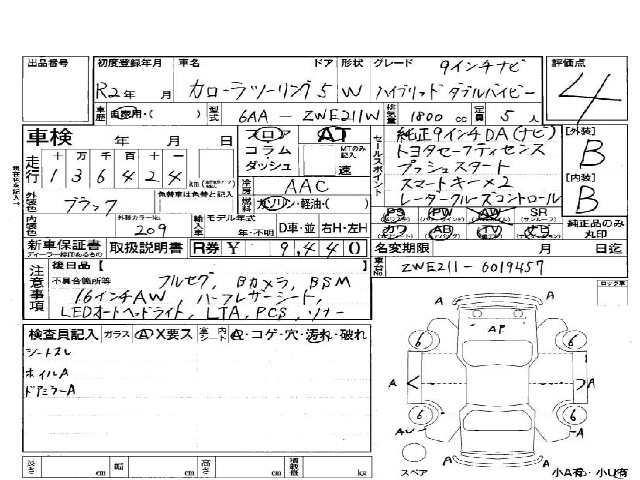 出品番号 初度登録年月 車名 ドア 形状 グレード 9インチナビ 評価点
R2年 月 カローラツーリング 5 W ハイブリッド ダブルバイビー 4
車歴 自家用・( ) 型式 6AA - ZWE211W 排気量 1800 cc 定員 5 人
車検 年 月 日 フロア AT
コラム MTのみ記入
ダッシュ 速
走行 十 万 千 百 十 一
1 3 6 4 2 4
冷房 AAC
燃料 ガソリン・軽油・( )
セールスポイント
純正9インチDA(ナビ)
トヨタセーフティセンス
プッシュスタート
スマートキー×2
レータークルーズコントロール
[外装] B
[内装] B
外装色 ブラック 色替車は色替と記入
内装色 外装カラーNo. 209
輸入車 モデル年式 年・不明 D車・並 右H・左H
PS PW AW SR
カワ AB TV ナビ
純正品のみ丸印
新車保証書 取扱説明書 R券 ¥ 9,440
ディーラー捺印あるもの
名変期限 月 日迄
車台No. ZWE211-6019457
注意事項
後日品【 】
不具合箇所等 フルセグ, Bカメラ, BSM
16インチAW, ハーフレザーシート,
LEDオートヘッドライト, LTA, PCS, ソナー
ロック車
検査員記入 ガラス A X要ス 室内 シート A・コゲ・穴・汚れ・破れ
シートスレ
ホイルA
ドアミラーA
AP
6 6
A A A
6 6
A A
AW A
A A
スペア 小A有・小U有
長さ cm 幅 cm 高さ cm 積載量 kg